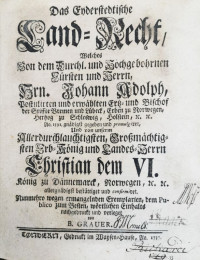 Das Eyderstedtische
Land-Recht,
Welches
Von dem Durchl. und Hochgebohrnen
Fürsten und Herrn,
Hrn. Johann Adolph,
Postulirten und erwählten Ertz- und Bischof
der Stifter Bremen und Lübeck, Erben zu Norwegen,
Hertzog zu Schleswig, Holstein, &c. &c.
Und von unserm
Allerdurchlauchtigsten, Großmächtig-
sten Erb-König und Landes-Herrn
Christian dem VI.
König zu Dännemarck, Norwegen, &c. &c.
allergnädigst bestätiget und
Nunmehro wegen ermangelnden Exemplarien, dem Pu-
blico zum Besten,
nachgedruckt und verleget
von
B. GRAUER.
Gedruckt im Waysen-Hause,